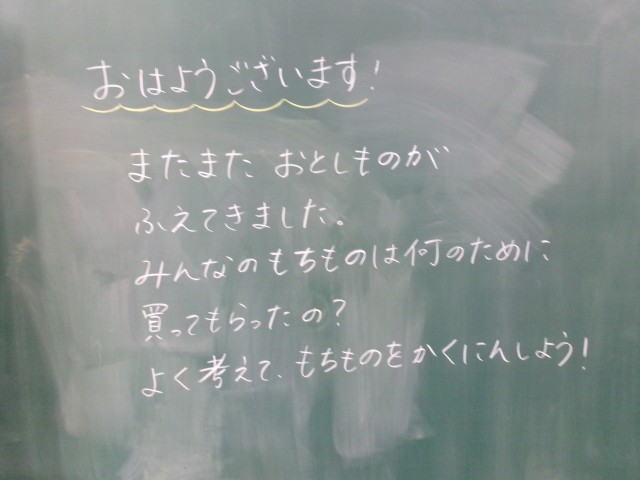 おはようございます!
またまた おとしものが
ふえてきました。
みんなのもちものは何のために
買ってもらったの?
よく考えて、もちものをかくにんしよう!